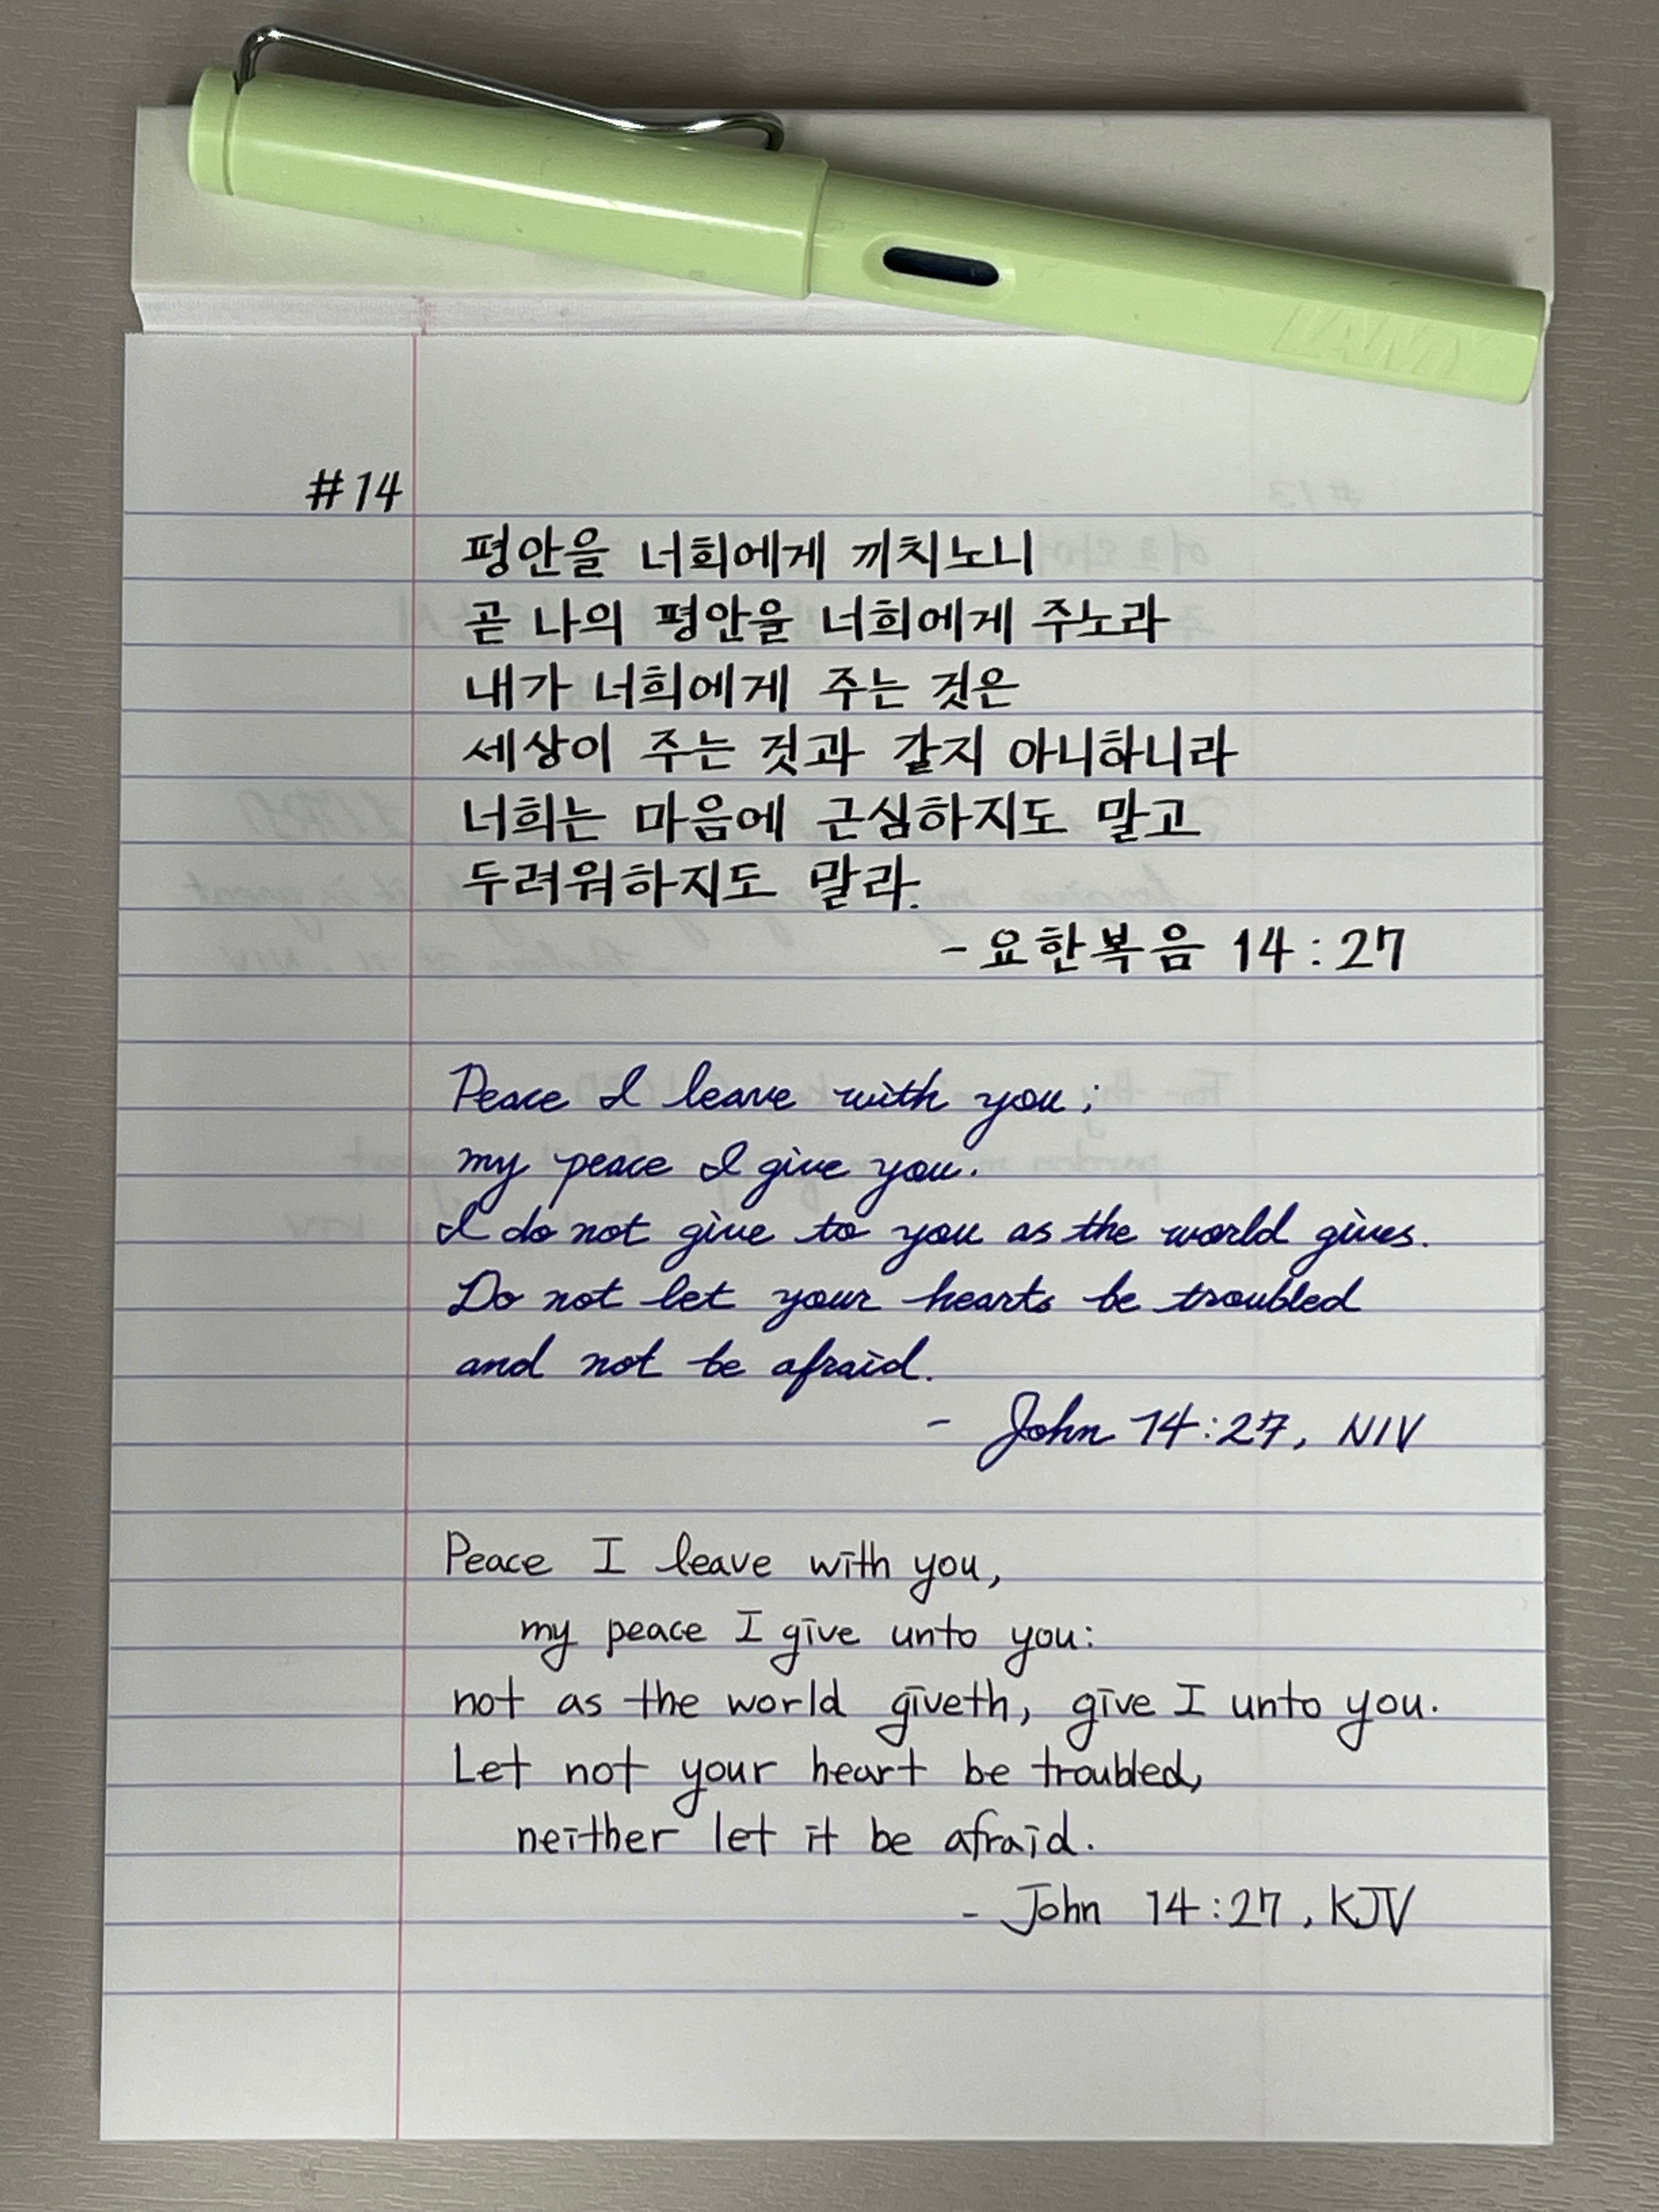 LAMY
#14
평안을 너희에게 끼치노니
곧 나의 평안을 너희에게 주노라
내가 너희에게 주는 것은
세상이 주는 것과 같지 아니하니라
너희는 마음에 근심하지도 말고
두려워하지도 말라.
- 요한복음 14:27
Peace I leave with you;
my peace I give you.
I do not give to you as the world gives.
Do not let your hearts be troubled
and not be afraid.
- John 14:27, NIV
Peace I leave with you,
my peace I give unto you:
not as the world giveth, give I unto you.
Let not your heart be troubled,
neither let it be afraid.
- John 14:27, KJV